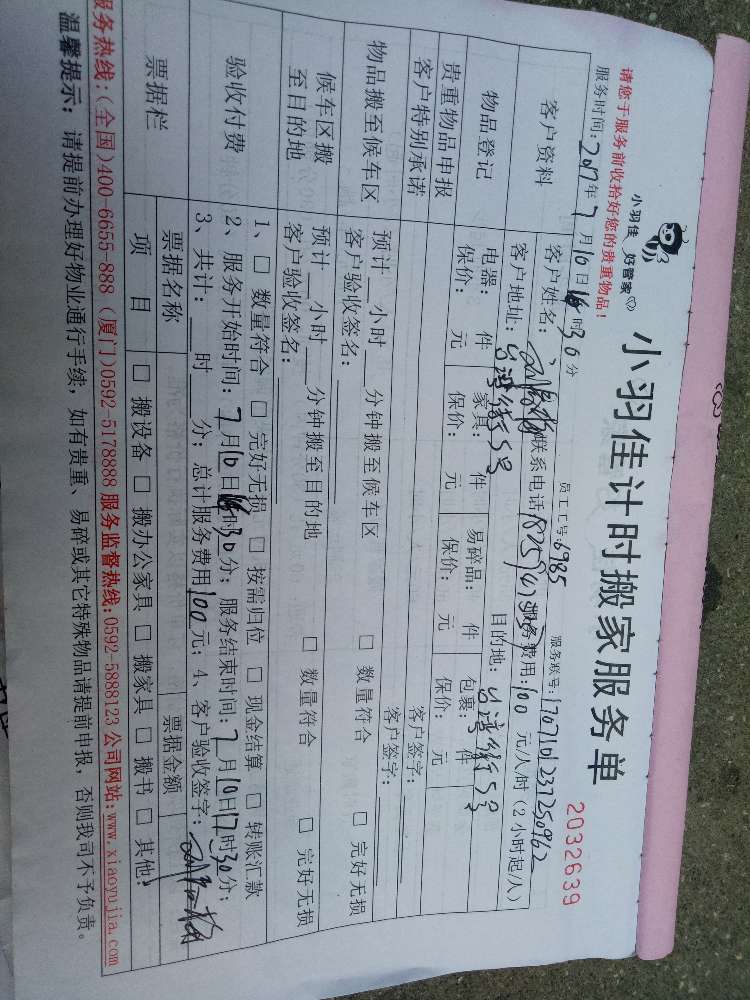 小羽佳 好管家
小羽佳计时搬家服务单
2032639
请您于服务前收拾好您的贵重物品！
员工工号:6985
服务联号:1707101237250962
服务时间:2017年7月10日 时30分
客户资料
客户姓名: 联系电话 服务费用:100 元/人/时（2小时起/人）
客户地址:台湾街5号 目的地:台湾街5号
物品登记
电器: 件 家具: 件 易碎品: 件 包裹: 件
保价: 元 保价: 元 保价: 元 保价: 元
贵重物品申报
客户特别承诺
客户签字:
物品搬至候车区
预计 小时 分钟搬至候车区 □ 数量符合 □ 完好无损
客户验收签名:
客户签字:
候车区搬
至目的地
预计 小时 分钟搬至目的地 □ 数量符合 □ 完好无损
客户验收签名:
验收付费
1、□ 数量符合 □ 完好无损 □ 按需归位 □ 现金结算 □ 转账汇款
2、服务开始时间:7月10日 时30分; 服务结束时间:7月10日17时30分;
3、共计: 时 分; 总计服务费用100元; 4、客户验收签字:
票据栏
票据名称 票据金额
项 目 □ 搬设备 □ 搬办公家具 □ 搬家具 □ 搬书 □ 其他:
服务热线:(全国)400-6655-888 (厦门)0592-5178888 服务监督热线:0592-5888123 公司网站:www.xiaoyujia.com
温馨提示: 请提前办理好物业通行手续，如有贵重、易碎或其它特殊物品请提前申报，否则我司不予负责。